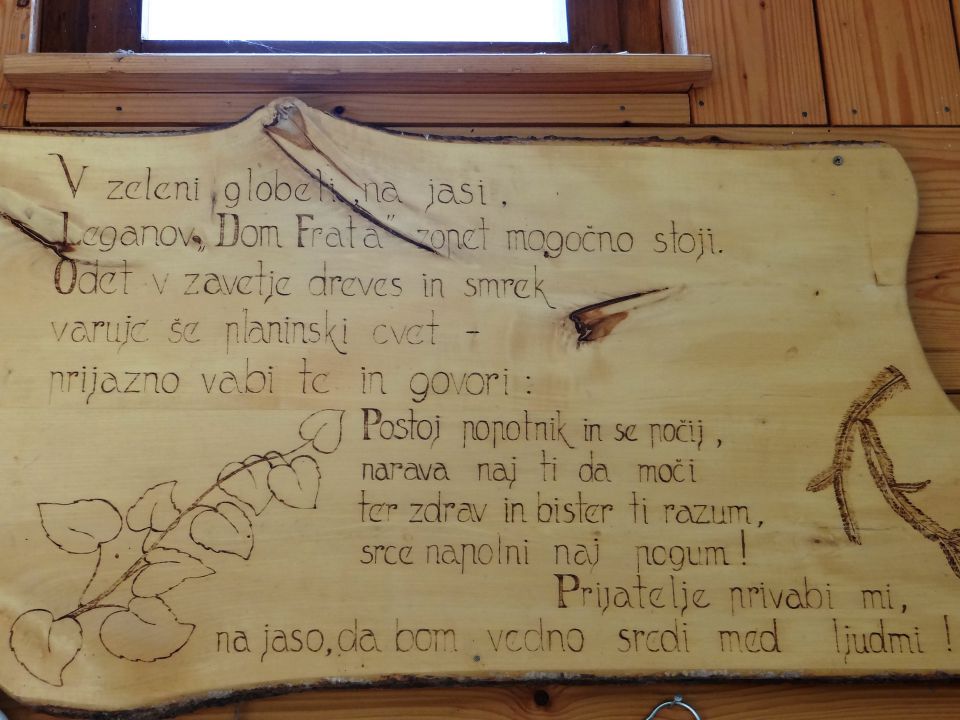 V zeleni globeli, na jasi,
Leganov „Dom Frata" zopet mogočno stoji.
Odet v zavetje dreves in smrek
varuje še planinski cvet -
prijazno vabi te in govori:
Postoj popotnik in se počij,
narava naj ti da moči
ter zdrav in bister ti razum,
srce napolni naj pogum!
Prijatelje privabi mi,
na jaso, da bom vedno sredi med ljudmi!